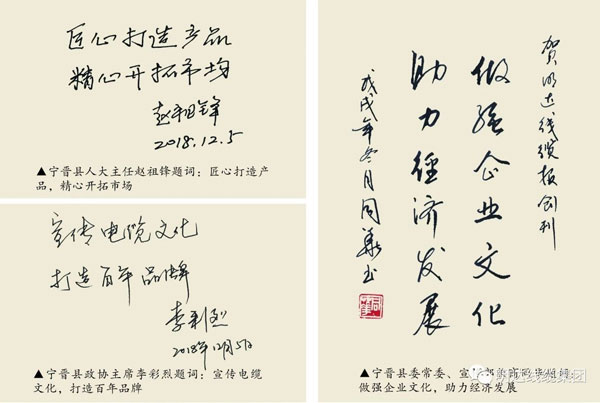 匠心打造产品
精心开拓市场
赵祖锋
2018.12.5
▲宁晋县人大主任赵祖锋题词：匠心打造产
品，精心开拓市场
宣传电缆文化
打造百年品牌
李彩烈
2018年12月5日
▲宁晋县政协主席李彩烈题词：宣传电缆
文化，打造百年品牌
贺明达线缆报创刊
做强企业文化
助力经济发展
戊戌年冬月同华书
▲宁晋县委常委、宣
做强企业文化，助力经济发展
明达线缆集团